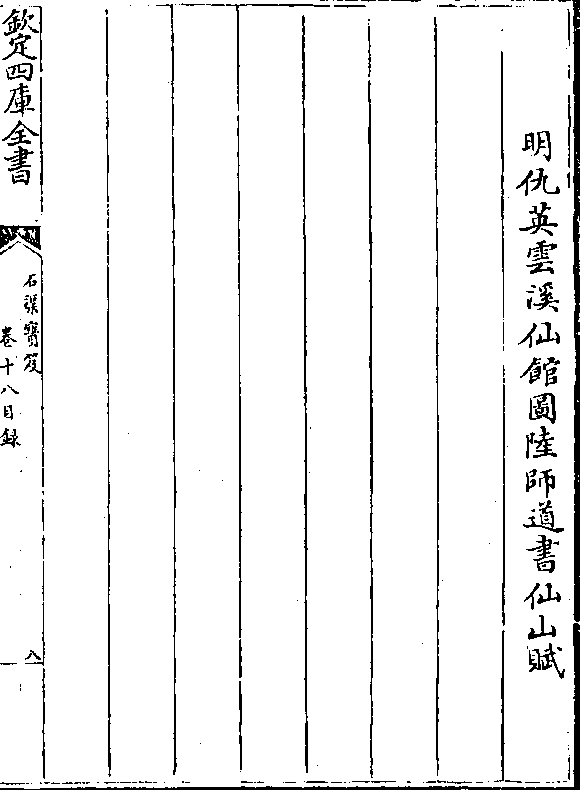 明仇英雲溪仙館圖陸師道書仙山賦
欽定四庫全書
石渠寶笈
卷十八目録
八